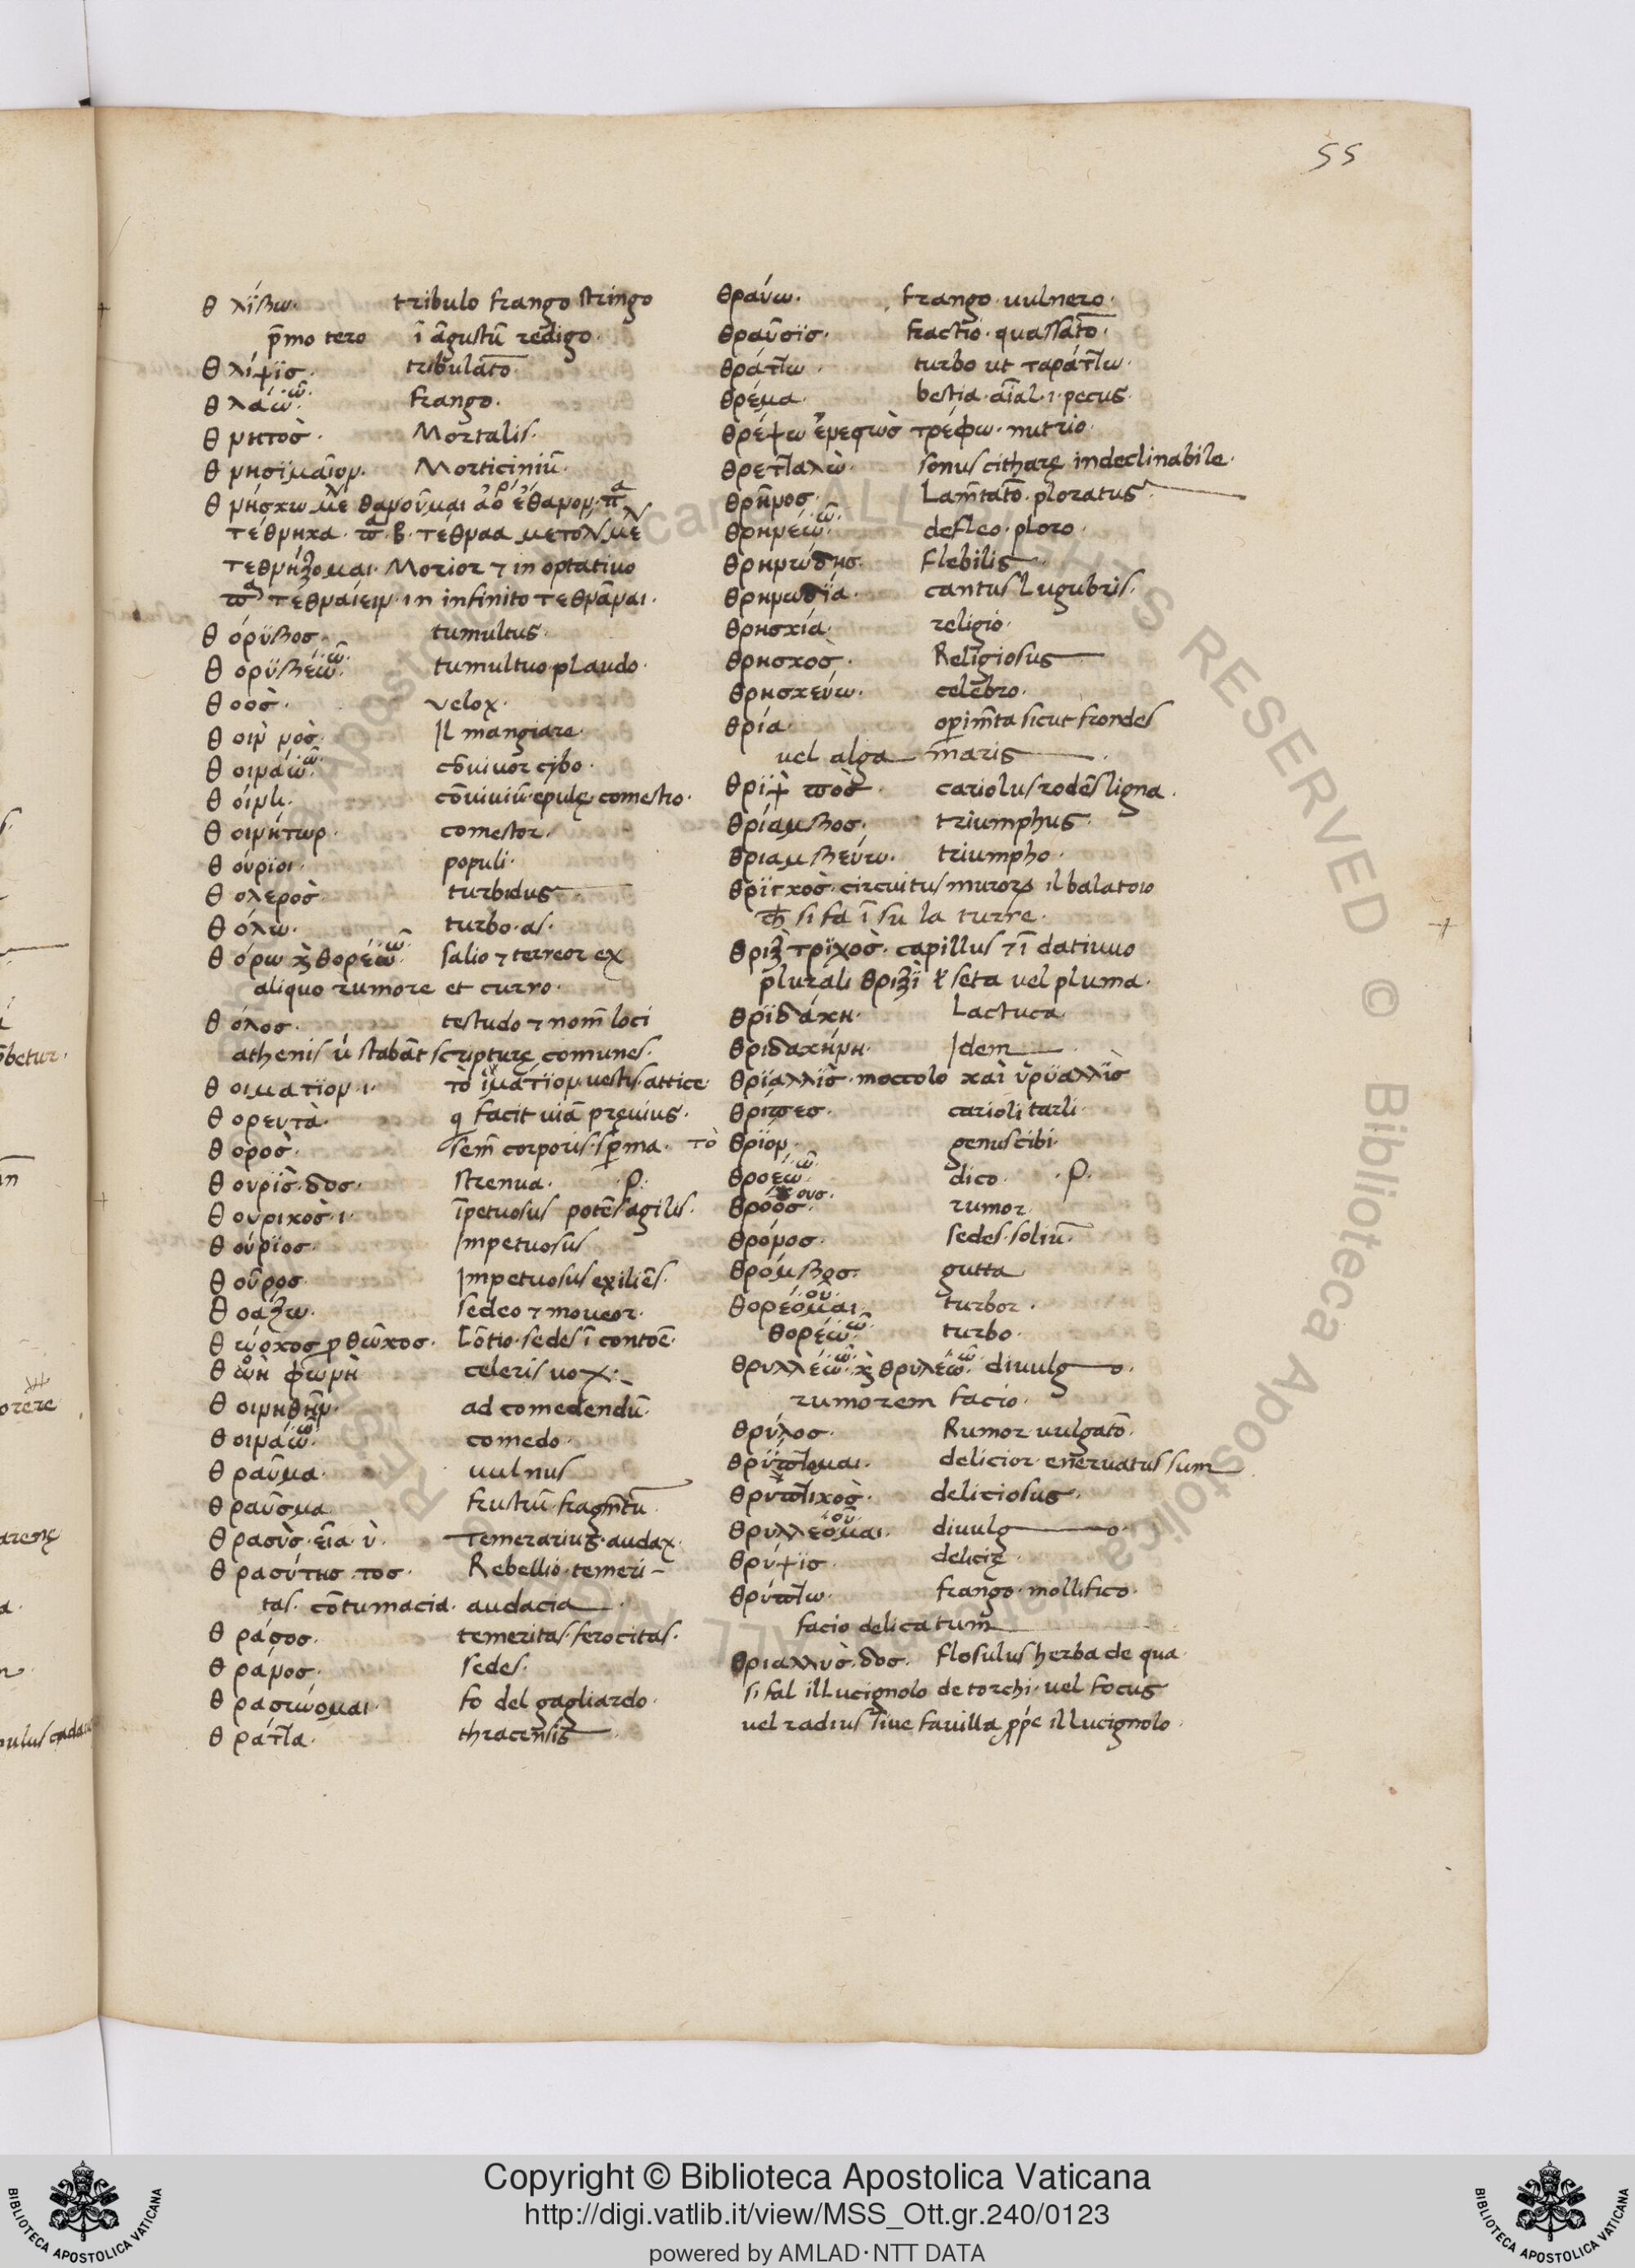 55
θ λίβω. tribulo frango stringo
p̄mo tero ī āgustū redigo.
θ λίψϊσ. tribulatō.
θ λάω. ῶ. frango.
θ νητοσ̀. Mortalis.
θ νησϊμαῖον. Morticiniū.
θ νήσκω με θανοῦμαι ἀό ἔθανον. π
τέθνηκα. π. β. τέθναα μετολ με
τεθνήξομαι. Morior ⁊ in optatiuo
π τεθναίειν. in infinito τεθνᾶναι.
θ όρϋβοσ. tumultus.
θ ορϋβέω. ῶ. tumultuo plaudo.
θ οοσ̀. velox.
θ οιν̀ νοσ̀. Il mangiare.
θ οινάω. ῶ. cōuiuor cibo.
θ οίνη. cōuiuiū epulę comestio.
θ οινήτωρ. comestor.
θ ούρϊοι. populi.
θ ολεροσ̀. turbidus
θ όλω. turbo. as.
θ όρω κ̀ θορέω. ῶ. salio ⁊ terreor ex
aliquo rumore et curro.
θ όλοσ. testudo ⁊ nom̄ loci
athenis ú stabāt scripturę comunes.
θ οιματϊον. ι. τὸ ϊμάτϊον. uestis. attice
θ ορευτὰ. q facit uiā pręuius.
θ οροσ̀. sem̄ corporis. sp̄ma.
θ ουρϊσ̀. δοσ. strenua. .ρ.
θ ουρικοσ̀. ι. īpetuosus potēs agilis.
θ ούρϊοσ. Impetuosus
θ οῦροσ. Impetuosus exiliēs.
θ οάζω. sedeo ⁊ moueor.
θ ώοκοσ ρ θῶκοσ. Cōtio. sedes ī contoē.
θ οὴ φωνὴ celeris uox.
θ οινηθῆν. ad comedendū.
θ οινάω. ῶ. comedo.
θ ραῦμα. uulnus
θ ραῦσμα. frustū. fragm̄tū.
θ ρασὺσ. εῖα. ὺ. Temerarius. audax.
θ ρασύτησ. τοσ. Rebellio. temeri-
tas. cōtumacia. audacia.
θ ράσοσ. temeritas. ferocitas.
θ ράνοσ. sedes.
θ ρασιώομαι. fo del gagliardo.
θ ράτ͡λα. thracensis.
θραύω. frango. uulnero.
θραῦσϊσ. fractio. quassatō.
θράτ͡λω. turbo ut ταράτ͡λω.
θρέμα. bestia. aīal. ι. pecus.
θρέψω ἐνεστὼσ τρέφω. nutrio.
θρετ͡λαλὼ. sonus citharę indeclinabile.
θρῆνοσ. Lam̄tatō. ploratus.
θρηνέω. ῶ. defleo. ploro.
θρηνώδησ. Flebilis.
θρηνωδϊα. cantus lugubris.
θρησκία. religio.
θρησκοσ̀. Religiosus
θρησκεύω. celebro.
θρία. opim̄ta sicut frondes
uel alga maris
θρϊψ̀ ποσ̀. cariolus rodēs ligna.
θρίαμβοσ. triumphus.
θριαμβεύω. triumpho.
θρϊγκοσ̀. circuitus muroꝝ il balatoio
ch si fa ī su la turre.
θριξ̀ τρϊχοσ̀. capillus ⁊ ī datiuuo
plurali θριξϊ ł seta uel pluma.
θρϊδάκη. Lactuca
θριδακήνη. Idem.
θρϊαλλϊσ̀. moccolo καὶ ὐρϋαλλϊσ̀
θρίπεσ. carioli tarli.
τὸ θρῖον. genus cibi.
θροέω. ῶ. dico. .ρ.
θροοσ. ουσ. rumor.
θρόνοσ. sedes. soliū.
θρόμβοσ. gutta
θορέομαι. οῦ turbor.
θορέω. ῶ. turbo.
θρυλλέω. ῶ. κ̀ θρυλέω. ῶ. diuulgo.
rumorem facio.
θρύλοσ. Rumor uulgatō.
θρϋπ͡λομαι. delicior. eneruatus sum
θρυπ͡λικοσ̀. deliciosus.
θρυλλέομαι. οῦ diuulgo.
θρύψϊσ. delicię.
θρύπ͡λω. frango. mollifico.
facio delicatum
θριαλλυσ̀. δοσ. Flosulus herba de qua
si fal illucignolo de torchi. uel focus
uel radius siue fauilla ꝓpe illucignolo.
Copyright © Biblioteca Apostolica Vaticana
http://digi.vatlib.it/view/MSS_Ott.gr.240/0123
powered by AMLAD·NTT DATA
BIBLIOTECA APOSTOLICA VATICANA
BIBLIOTECA APOSTOLICA VATICANA